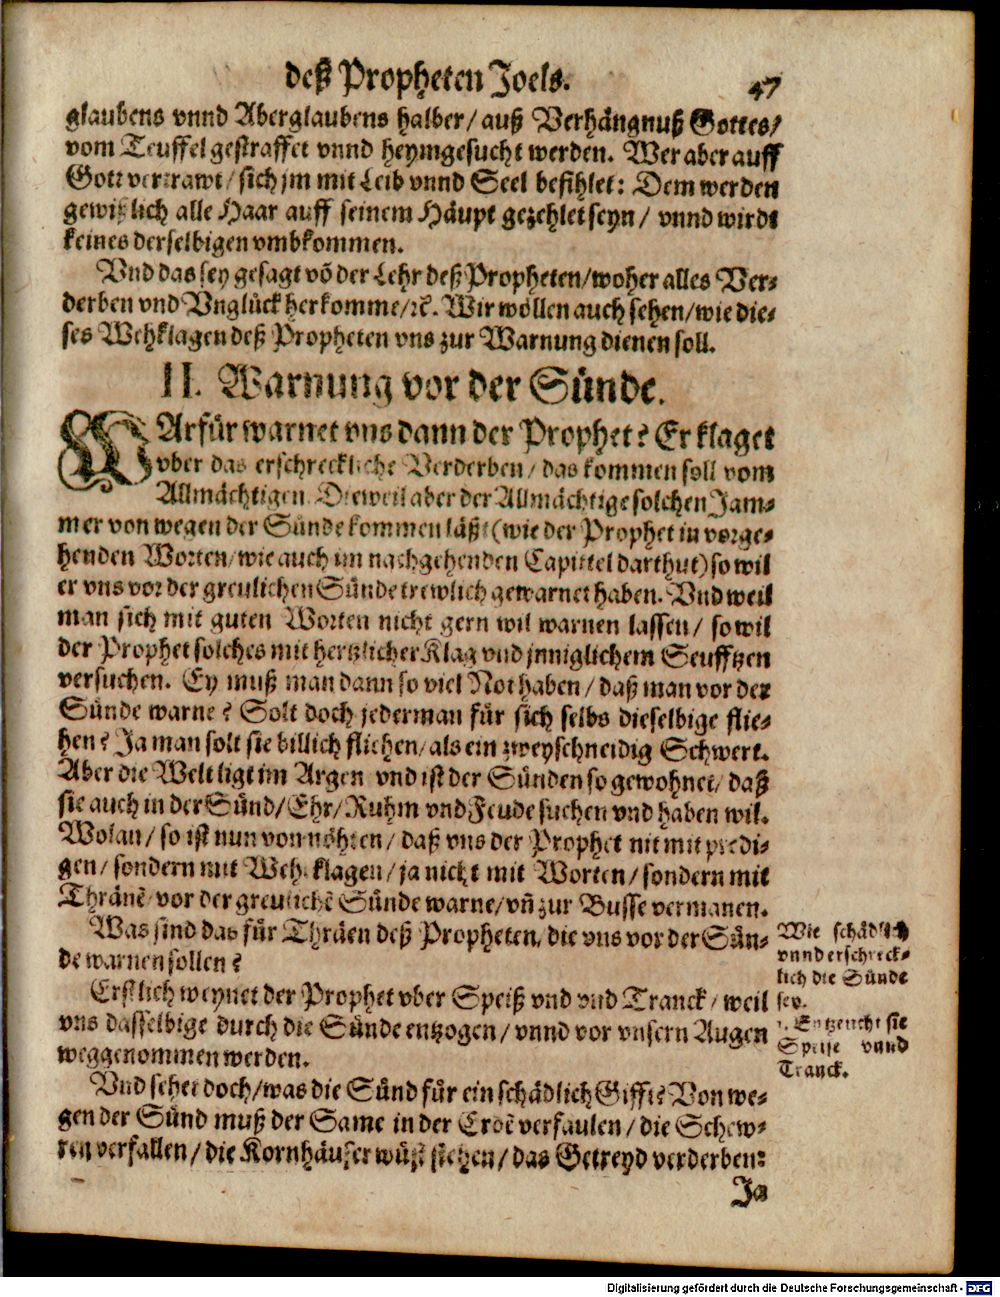 deß Propheten Joels. 47
glaubens vnnd Aberglaubens halber/ auß Verhängnuß Gottes/
vom Teuffel gestraffet vnnd heymgesucht werden. Wer aber auff
Gott vertrawt/ sich jm mit Leib vnnd Seel befihlet: Dem werden
gewißlich alle Haar auff seinem Häupt gezehlet seyn/ vnnd wirdt
keines derselbigen vmbkommen.
Vnd das sey gesagt võ der Lehr deß Propheten/ woher alles Ver-
derben vnd Vnglück herkomme/ ꝛc̃. Wir wöllen auch sehen/ wie die-
ses Wehklagen deß Propheten vns zur Warnung dienen soll.
II. Warnung vor der Sünde.
WArfür warnet vns dann der Prophet? Er klaget
vber das erschreckliche Verderben/ das kommen soll vom
Allmächtigen. Dieweil aber der Allmächtige solchen Jam-
mer von wegen der Sünde kommen läßt (wie der Prophet in vorge-
henden Worten/ wie auch im nachgehenden Capittel darthut) so wil
er vns vor der greulichen Sünde trewlich gewarnet haben. Vnd weil
man sich mit guten Worten nicht gern wil warnen lassen/ so wil
der Prophet solches mit hertzlicher Klag vnd jnniglichem Seufftzen
versuchen. Ey muß man dann so viel Not haben/ daß man vor der
Sünde warne? Solt doch jederman für sich selbs dieselbige flie-
hen? Ja man solt sie billich fliehen/ als ein zweyschneidig Schwert.
Aber die Welt ligt im Argen vnd ist der Sünden so gewohnet/ daß
sie auch in der Sünd/ Ehr/ Ruhm vnd Feude suchen vnd haben wil.
Wolan/ so ist nun von nöhten/ daß vns der Prophet nit mit predi-
gen/ sondern mit Wehklagen/ ja nicht mit Worten/ sondern mit
Thränẽ/ vor der greulichẽ Sünde warne/ vñ zur Busse vermanen.
Was sind das für Thräen deß Propheten, die vns vor der Sün-
de warnen sollen?
Erstlich weynet der Prophet vber Speiß vnd vnd Tranck/ weil
vns dasselbige durch die Sünde entzogen/ vnnd vor vnsern Augen
weggenommen werden.
Vnd sehet doch/ was die Sünd für ein schädlich Gifft? Von we-
gen der Sünd muß der Same in der Erdẽ verfaulen/ die Schew-
ren verfallen/ die Kornhäuser wüst stehen/ das Getreyd verderben:
Ja
Wie schädlich
vnnd erschreck-
lich die Sünde
sey.
1. Entzeucht sie
Speise vnnd
Tranck.
Digitalisierung gefördert durch die Deutsche Forschungsgemeinschaft - DFG